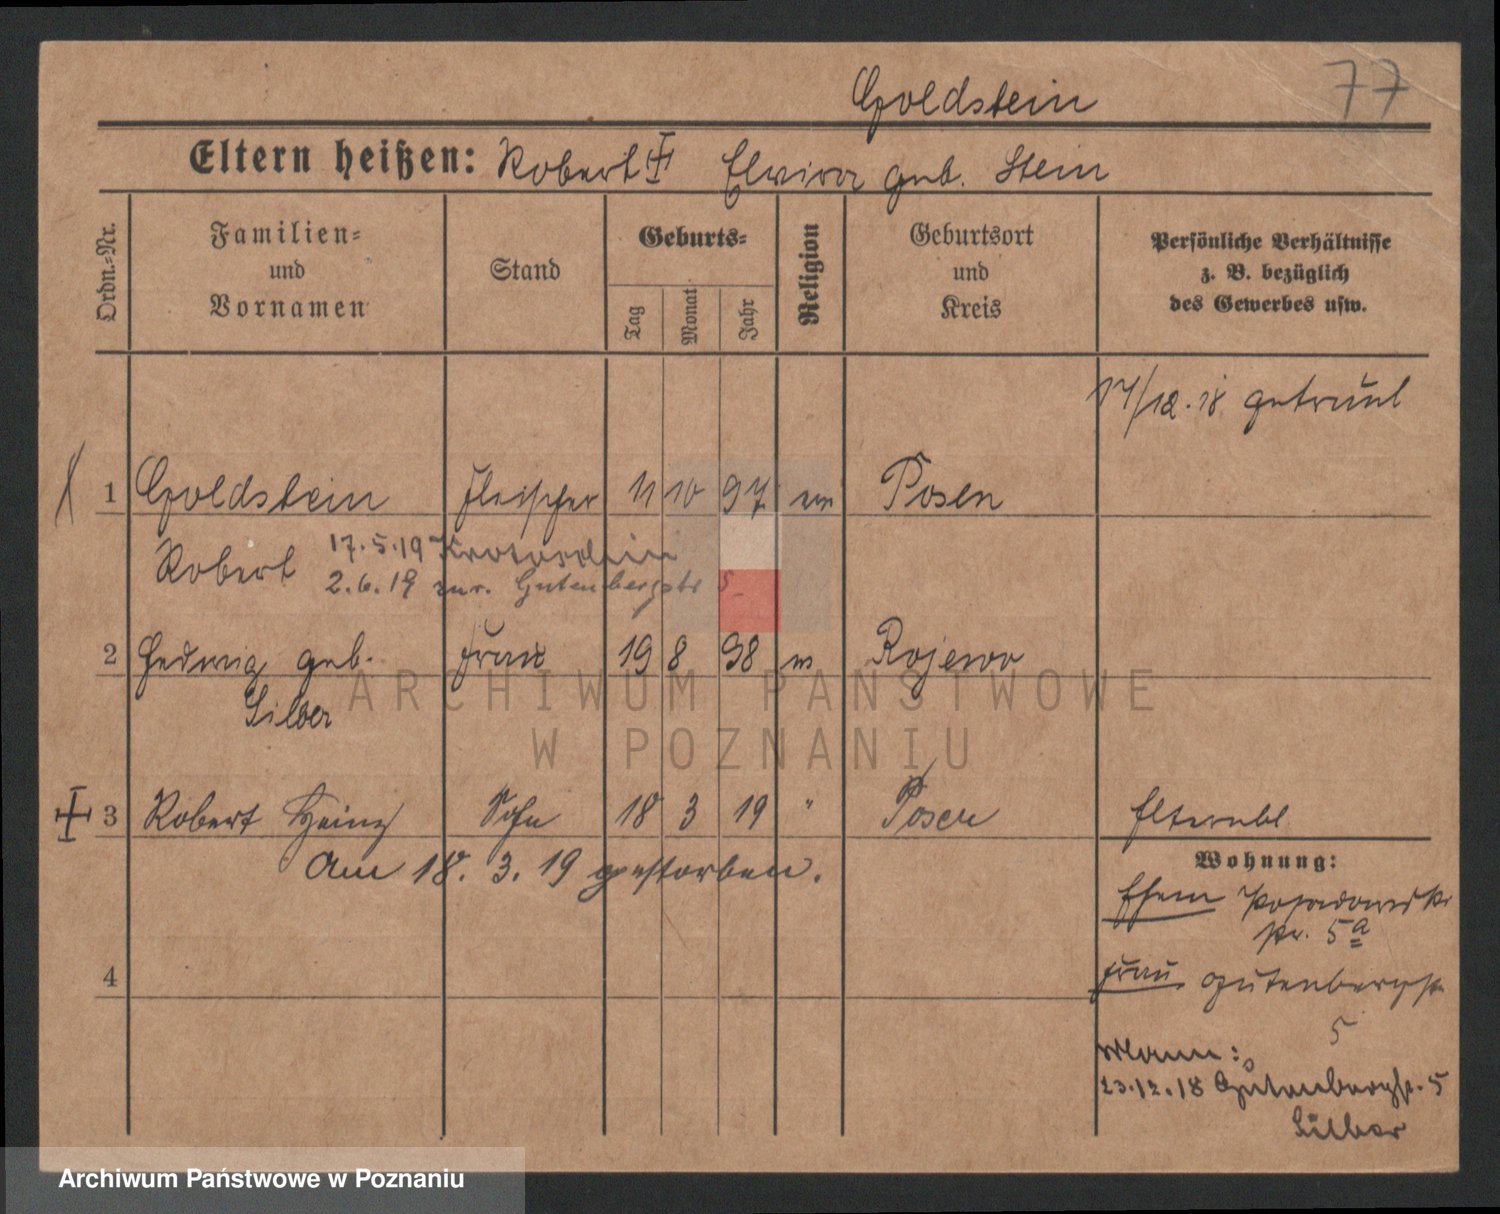 77
Goldstein
Eltern heißen: Robert Elvira geb. Stein
Ordn.=Nr.
Familien=
und
Vornamen
Stand
Geburts=
Tag
Monat
Jahr
Religion
Geburtsort
und
Kreis
Persönliche Verhältnisse
z. B. bezüglich
des Gewerbes usw.
17/12.18 getraut
1 Goldstein Fleischer 11 10 97 Posen
Robert 17.5.19 Krotoschin
2.6.19 zur. Gutenbergstr 5
2 Hedwig geb. Frau 19 8 98 m Rojewo
Silber
ARCHIWUM PAŃSTWOWE
W POZNANIU
3 Robert Heinz Sohn 18 3 19 " Posen
Am 18. 3. 19 gestorben.
Wohnung:
Ehem Posadowsky
str. 5a
Frau Gutenbergstr
5
4
Mann:
23.12.18 Gutenbergstr. 5
Silber
Archiwum Państwowe w Poznaniu